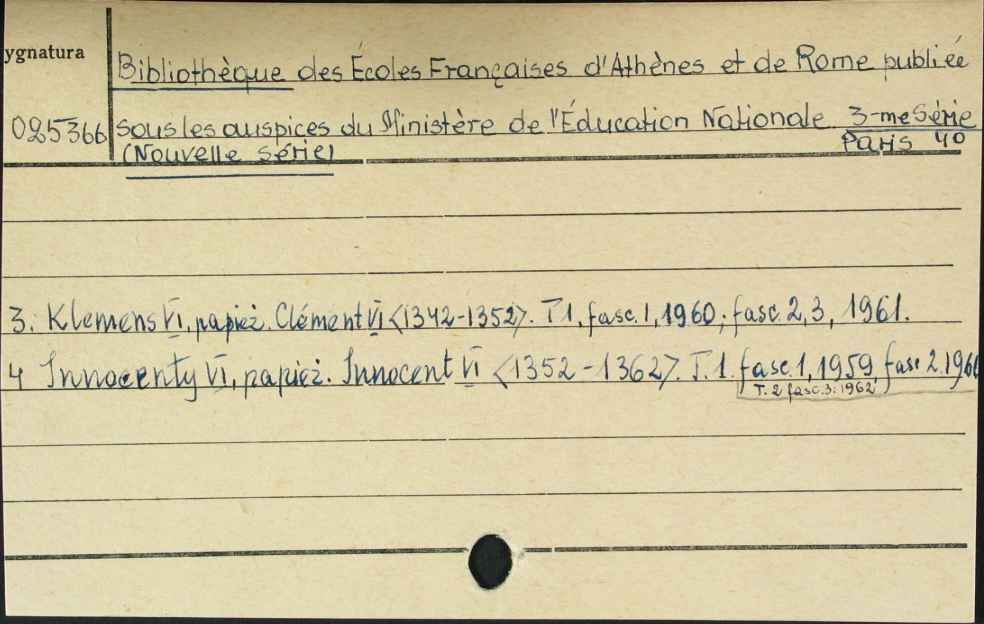 ygnatura
Bibliothèque des Écoles Françaises d'Athènes et de Rome publiée
085366 sous les auspices du Ministère de l'Éducation Nationale 3-me Série
(Nouvelle Série) Paris 40
3. Klemens VI, papież. Clément VI <1342-1352>. T 1, fasc. 1, 1960; fasc. 2, 3, 1961.
4 Innocenty VI, papież. Innocent VI <1352-1362>. T. 1. fasc. 1, 1959 fasc 2. 1960
T. 2 fasc. 3: 1962